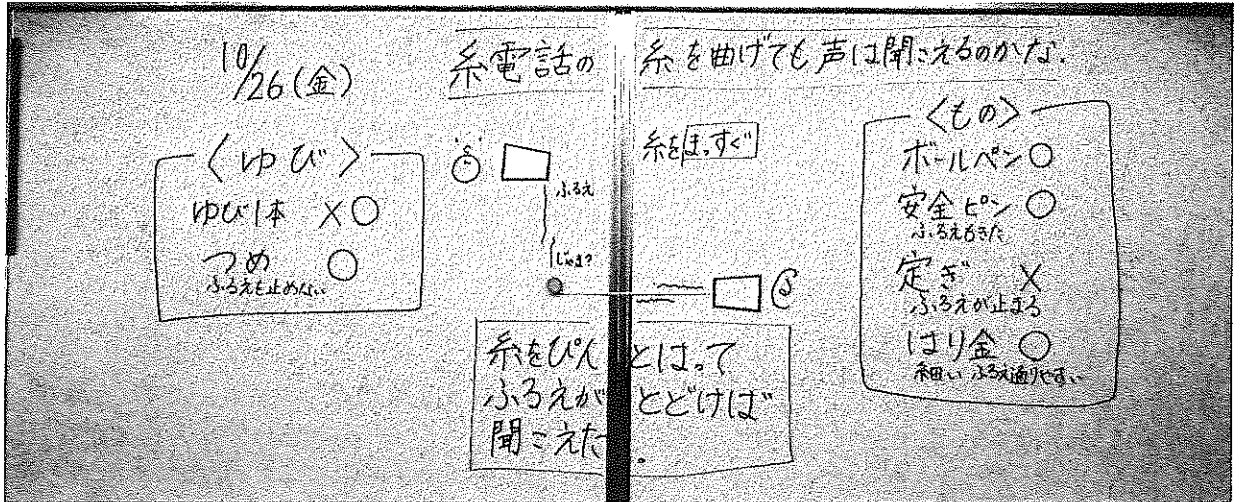 10/26(金)
糸電話の糸を曲げても声は聞こえるのかな.
〈ゆび〉
ゆび1本 ×○
つめ ○
ふるえを止めない
ふるえ
じゃま?
糸をまっすぐ
糸をぴんとはって
ふるえがとどけば
聞こえた。
〈もの〉
ボールペン○
安全ピン○
ふるえもきた
定ぎ ×
ふるえが止まる
はり金○
細い ふるえ通りやすい